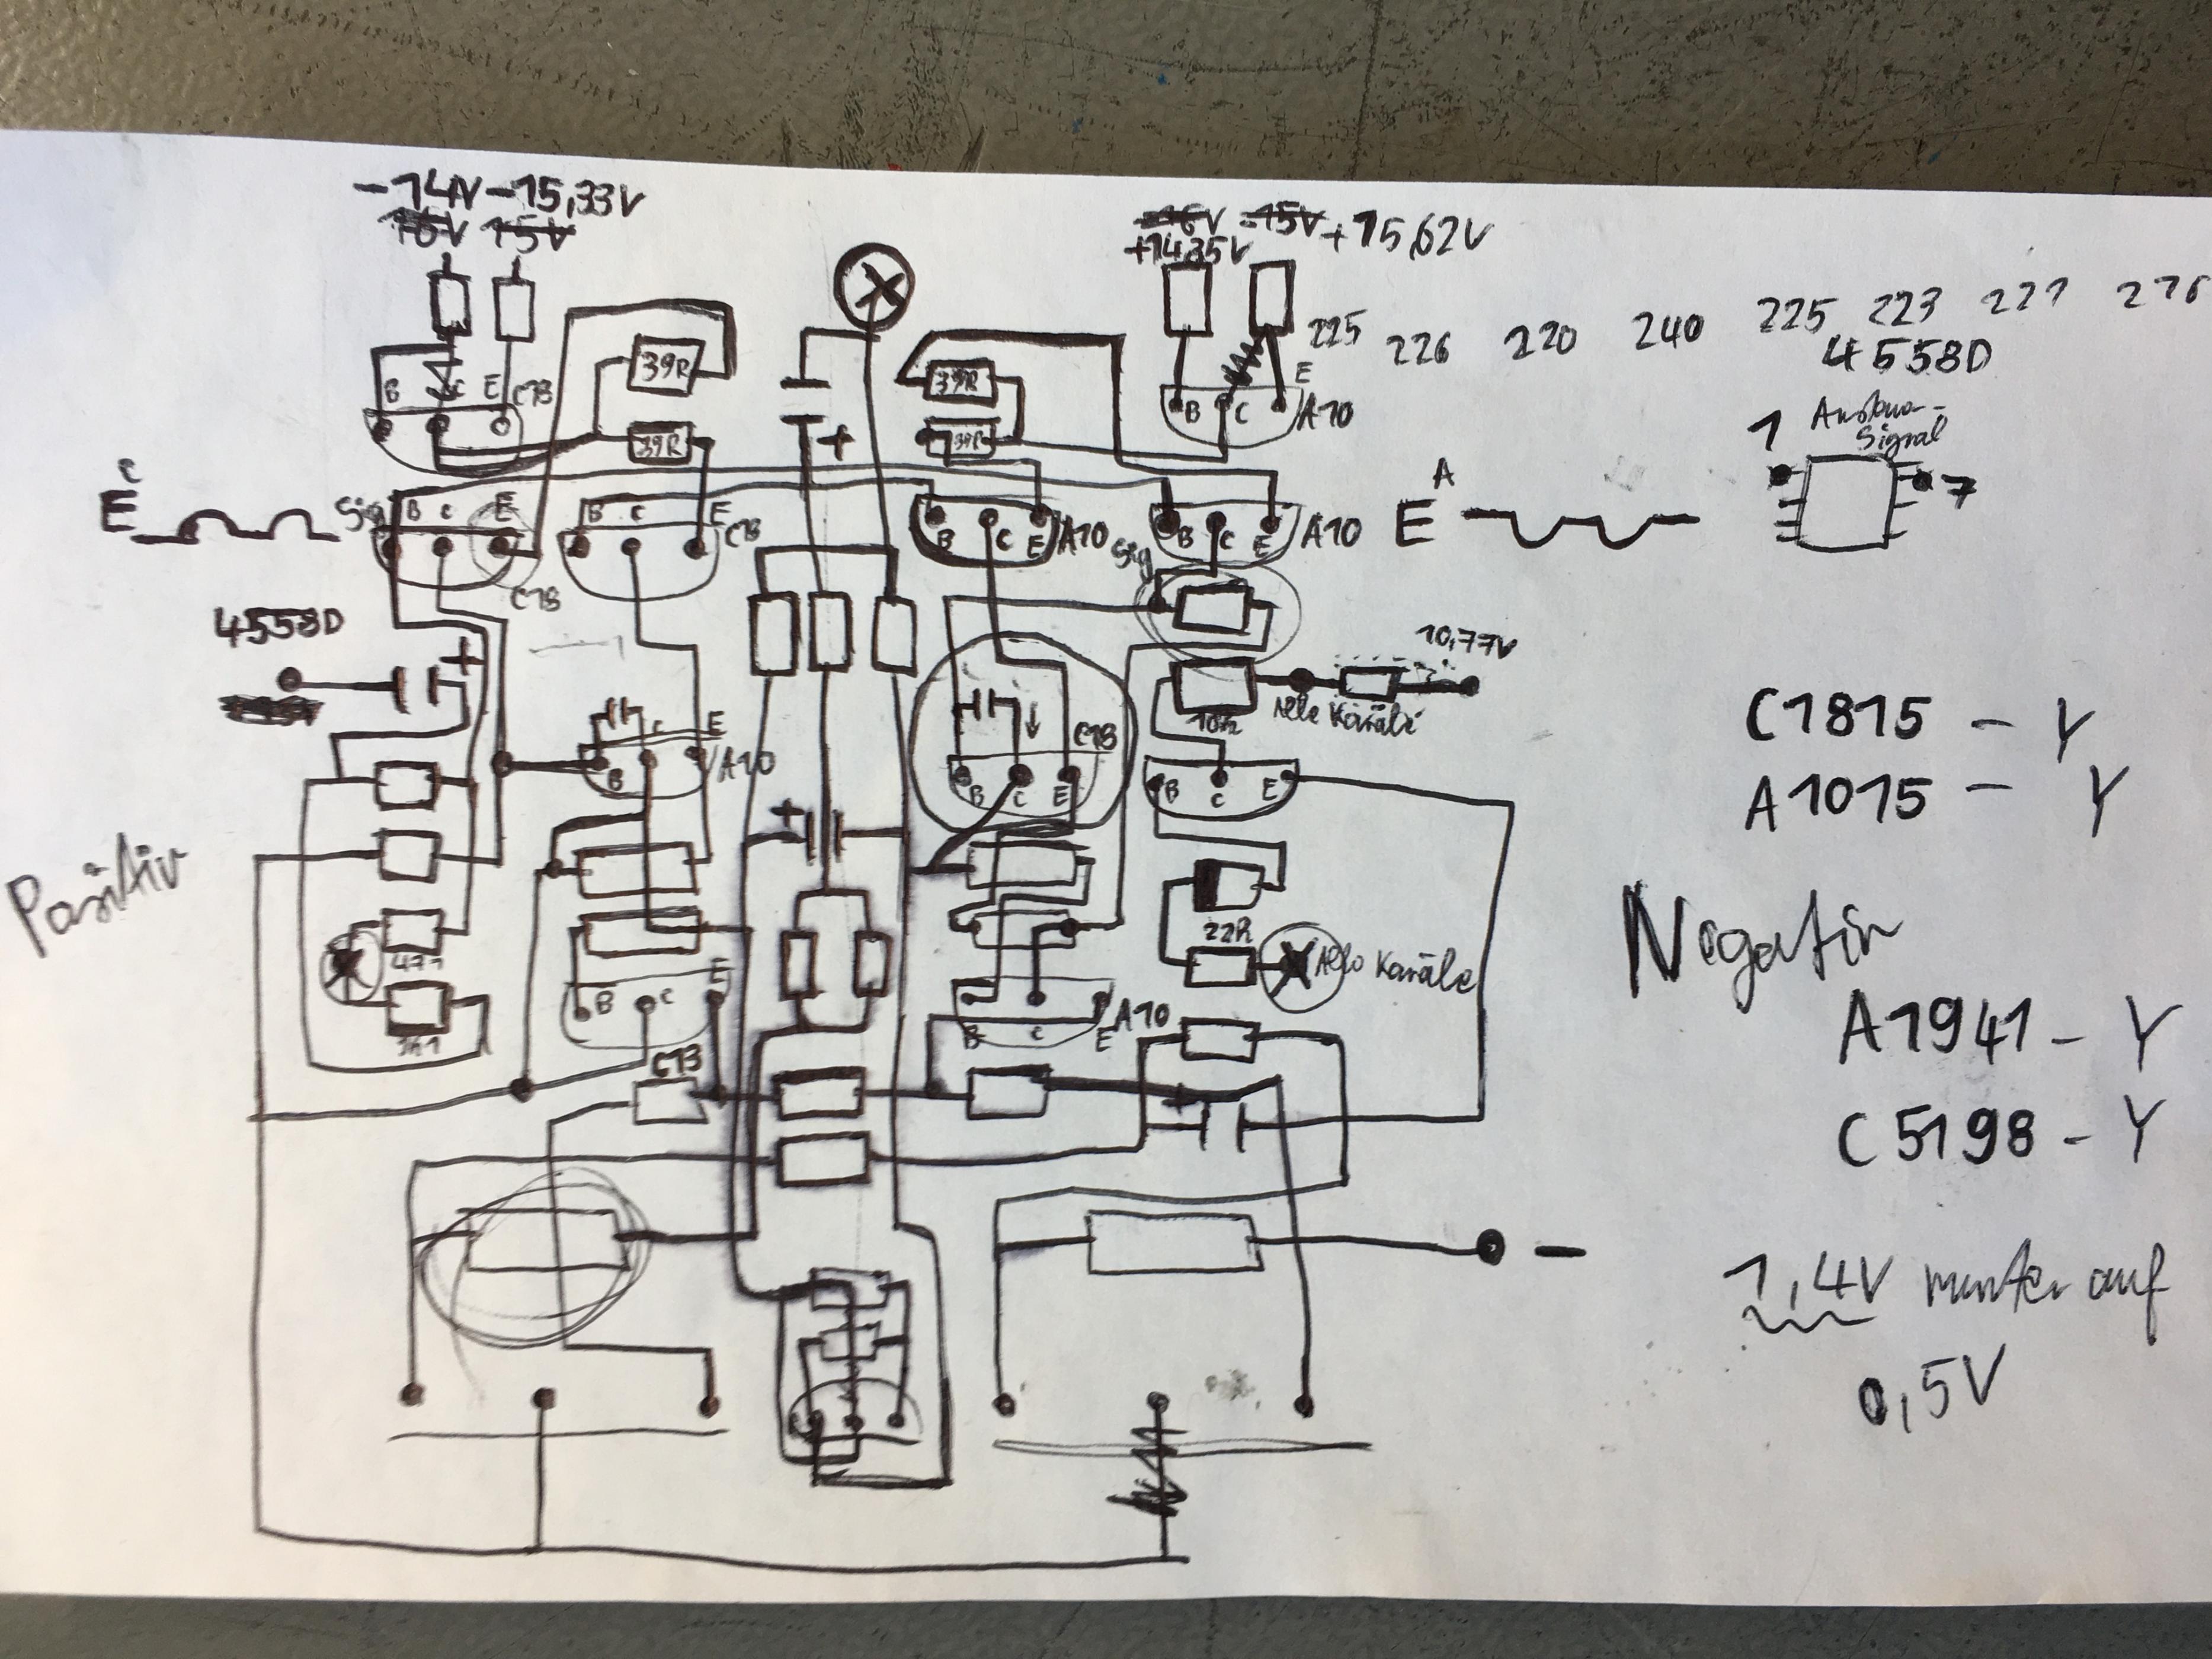 -14V -15,33V
16V 15V
-16V -15V +15,62V
+14,35V
225 226 220 240 225 223 221
4558D
39R
39R
39R
39R
B C E C18
B C E A10
1
Signal
7
E
Sig B C E C18
B C E C18
B C E A10
Sig B C E A10
E A
4558D
+
10,77V
Alle Kanäle
10k
C E
B A10
C18
B C E
B C E
C1815 - Y
A1015 - Y
Positiv
Negativ
471
22R
Alle Kanäle
B C E
C18
B C E A10
A1941 - Y
C5198 - Y
1,4V runter auf
0,5V